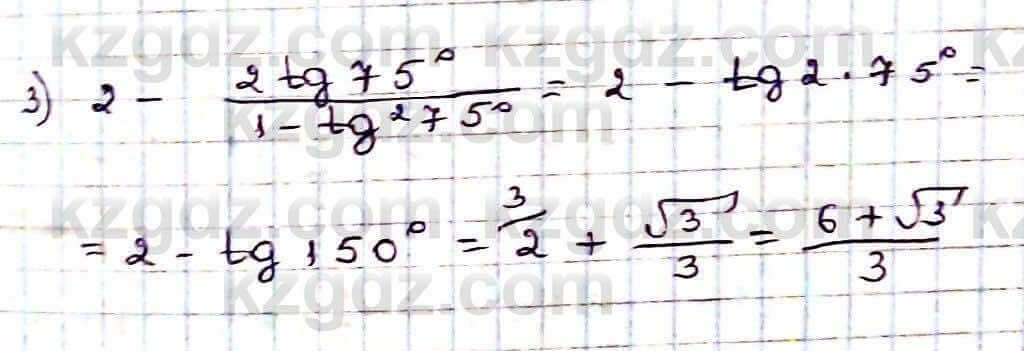 kzgdz.com kzgdz.com kz
3) 2 - \frac{2 tg 75°}{1 - tg² 75°} = 2 - tg 2 · 75° =
kzgdz.com
kzgdz.com kzgdz.com kz
= 2 - tg 150° = \overset{3}{2} + \frac{√3}{3} = \frac{6 + √3}{3}
kzgdz.com